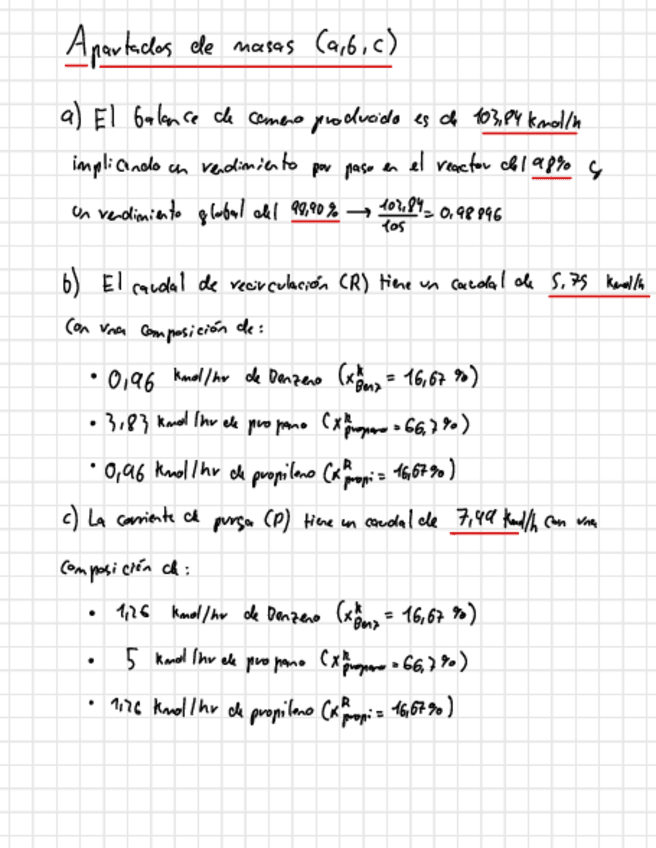 Apartados de masas (a,b,c)
a) El balance de cumeno producido es de 103,84 kmol/h
implicando un rendimiento por paso en el reactor del 98% y
un rendimiento global del 98,90% → 103,84/105 = 0,98896
b) El caudal de recirculación (R) tiene un caudal de 5,75 kmol/h
con una composición de:
• 0,96 kmol/hr de Benzeno (x^R_Benz = 16,67 %)
• 3,83 kmol/hr de propano (x^R_propano = 66,7%)
• 0,96 kmol/hr de propileno (x^R_propi = 16,67%)
c) La corriente de purga (P) tiene un caudal de 7,49 kmol/h con una
composición de:
• 1,26 kmol/hr de Benzeno (x^R_Benz = 16,67 %)
• 5 kmol/hr de propano (x^R_propano = 66,7%)
• 1,26 kmol/hr de propileno (x^R_propi = 16,67%)